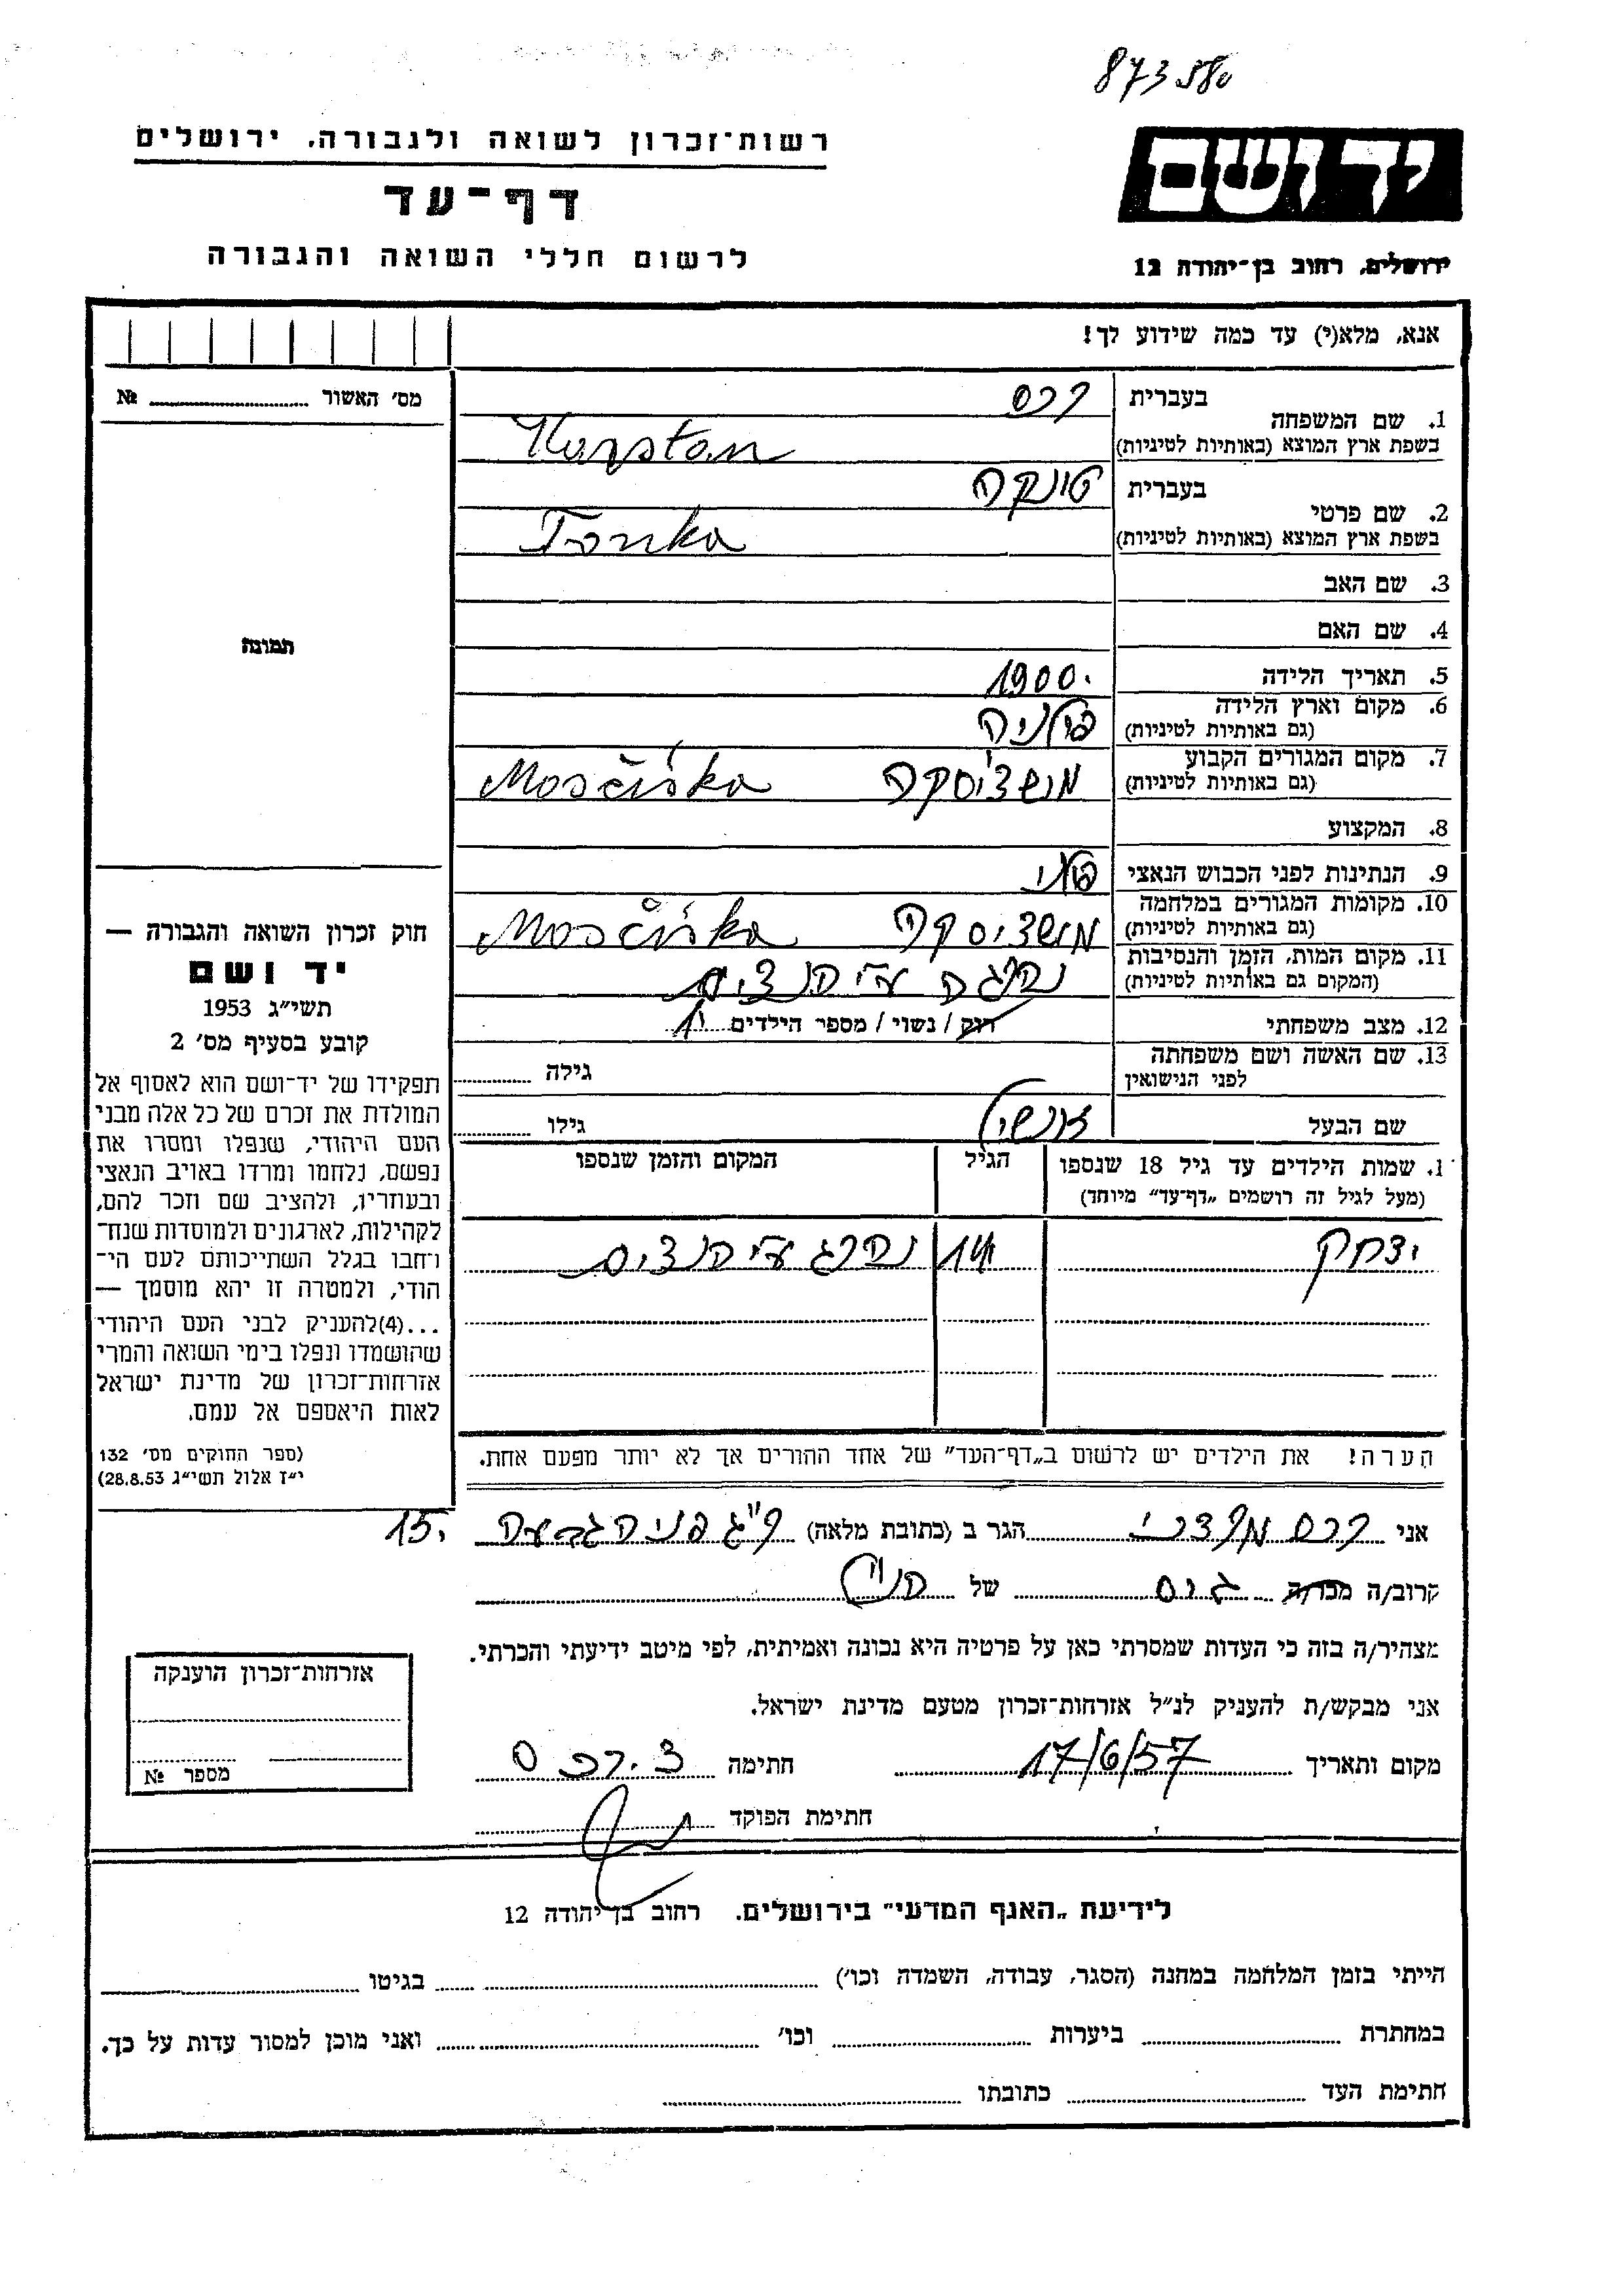 873580
רשות־זכרון לשואה ולגבורה, ירושלים
דף־עד
לרשום חללי השואה והגבורה
יד ושם
ירושלים, רחוב בן־יהודה 12
אנא, מלא(י) עד כמה שידוע לך!
מס׳ האשור № 
1. שם המשפחה
בעברית
בשפת ארץ המוצא (באותיות לטיניות) Karstan
2. שם פרטי
בעברית טונקה
בשפת ארץ המוצא (באותיות לטיניות) Tonka
3. שם האב
4. שם האם
5. תאריך הלידה 1900.
6. מקום וארץ הלידה פולניה
(גם באותיות לטיניות)
7. מקום המגורים הקבוע
(גם באותיות לטיניות) מושציסקה Mosčiśka
8. המקצוע
9. הנתינות לפני הכבוש הנאצי פולני
10. מקומות המגורים במלחמה
(גם באותיות לטיניות) מושציסקה Mosčiśka
11. מקום המות, הזמן והנסיבות
(המקום גם באותיות לטיניות) נהרגה ע״י הנצים
12. מצב משפחתי רווק / נשוי / מספר הילדים 1
13. שם האשה ושם משפחתה
לפני הנישואין
גילה
שם הבעל
גילו
1. שמות הילדים עד גיל 18 שנספו
(מעל לגיל זה רושמים „דף־עד״ מיוחד)
הגיל
המקום והזמן שנספו
יצחק 14 נהרג ע״י הנצים
הערה! את הילדים יש לרשום ב„דף־העד״ של אחד ההורים אך לא יותר מפעם אחת.
תמונה
חוק זכרון השואה והגבורה —
יד ושם
תשי״ג 1953
קובע בסעיף מס׳ 2
תפקידו של יד־ושם הוא לאסוף אל
המולדת את זכרם של כל אלה מבני
העם היהודי, שנפלו ומסרו את
נפשם, נלחמו ומרדו באויב הנאצי
ובעוזריו, ולהציב שם וזכר להם,
לקהילות, לארגונים ולמוסדות שנח־
רחבו בגלל השתייכותם לעם הי־
הודי, ולמטרה זו יהא מוסמך —
...(4)להעניק לבני העם היהודי
שהושמדו ונפלו בימי השואה והמרי
אזרחות־זכרון של מדינת ישראל
לאות היאספם אל עמם.
(ספר החוקים מס׳ 132
י״ז אלול תשי״ג 28.8.53)
אני הגר ב (כתובת מלאה) פני הגבעה 15.
קרוב/ה מכר/ה גיס של
מצהיר/ה בזה כי העדות שמסרתי כאן על פרטיה היא נכונה ואמיתית, לפי מיטב ידיעתי והכרתי.
אני מבקש/ת להעניק לנ״ל אזרחות־זכרון מטעם מדינת ישראל.
מקום ותאריך 17/6/57 חתימה
חתימת הפוקד
אזרחות־זכרון הוענקה
מספר №
לידיעת „האגף המדעי״ בירושלים. רחוב בן־יהודה 12
הייתי בזמן המלחמה במחנה (הסגר, עבודה, השמדה וכו׳) בגיטו
במחתרת ביערות וכו׳ ואני מוכן למסור עדות על כך.
חתימת העד כתובתו